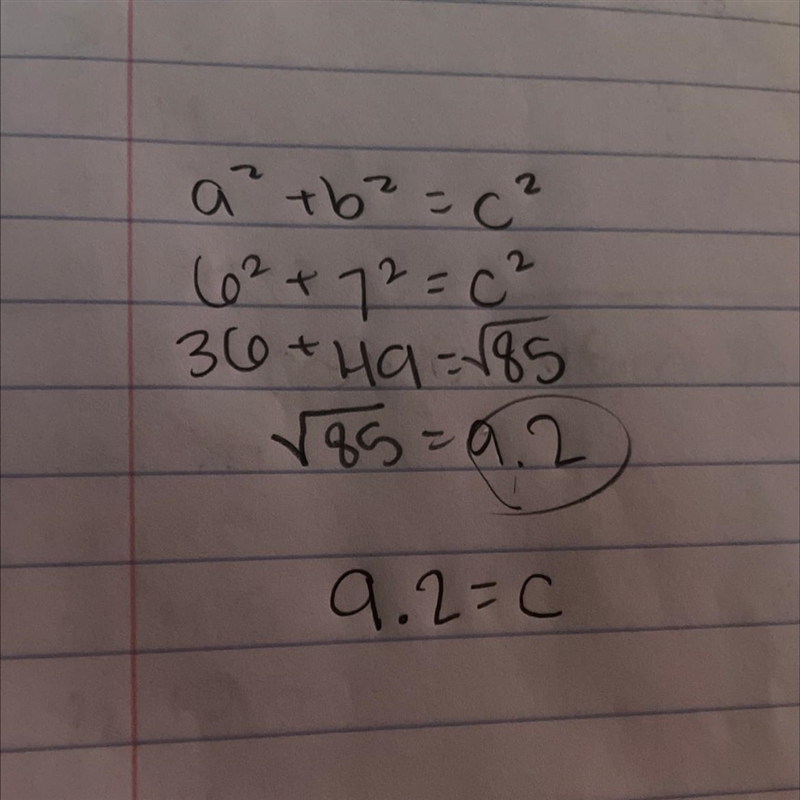 a² + b² = c²
6² + 7² = c²
36 + 49 = √85
√85 = 9.2
9.2 = c